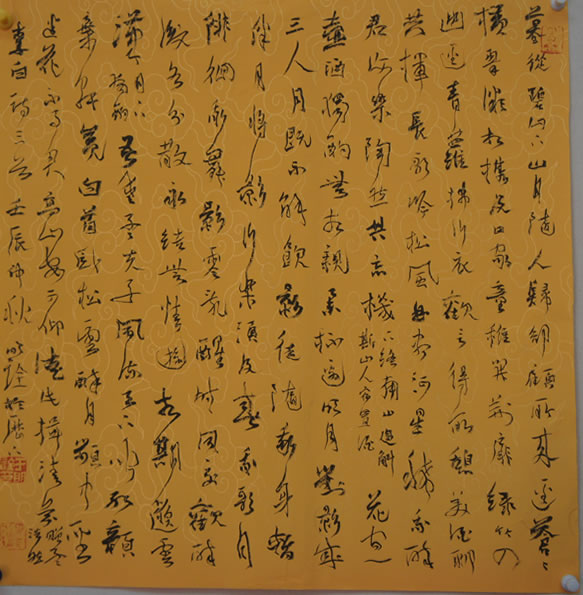 暮從碧山下山月隨人歸卻顧所來逕蒼蒼
橫翠微相攜及田家童稚開荊扉綠竹入
幽逕青蘿拂行衣歡言得所憩美酒聊
共揮長歌吟松風曲盡河星稀我醉
君復樂陶然共忘機
下終南山過斛
斯山人宿置酒
花間一
壺酒獨酌無相親舉杯邀明月對影成
三人月既不解飲影徒隨我身暫
伴月將影行樂須及春我歌月
徘徊我舞影零亂醒時同交歡醉
後各分散永結無情遊相期邈雲
漢
月下
獨酌
吾愛孟夫子風流天下聞紅顏
棄軒冕白首臥松雲醉月頻中聖
迷花不事君高山安可仰徒此揖清芬
贈孟
浩然
李白詩三首壬辰仲秋